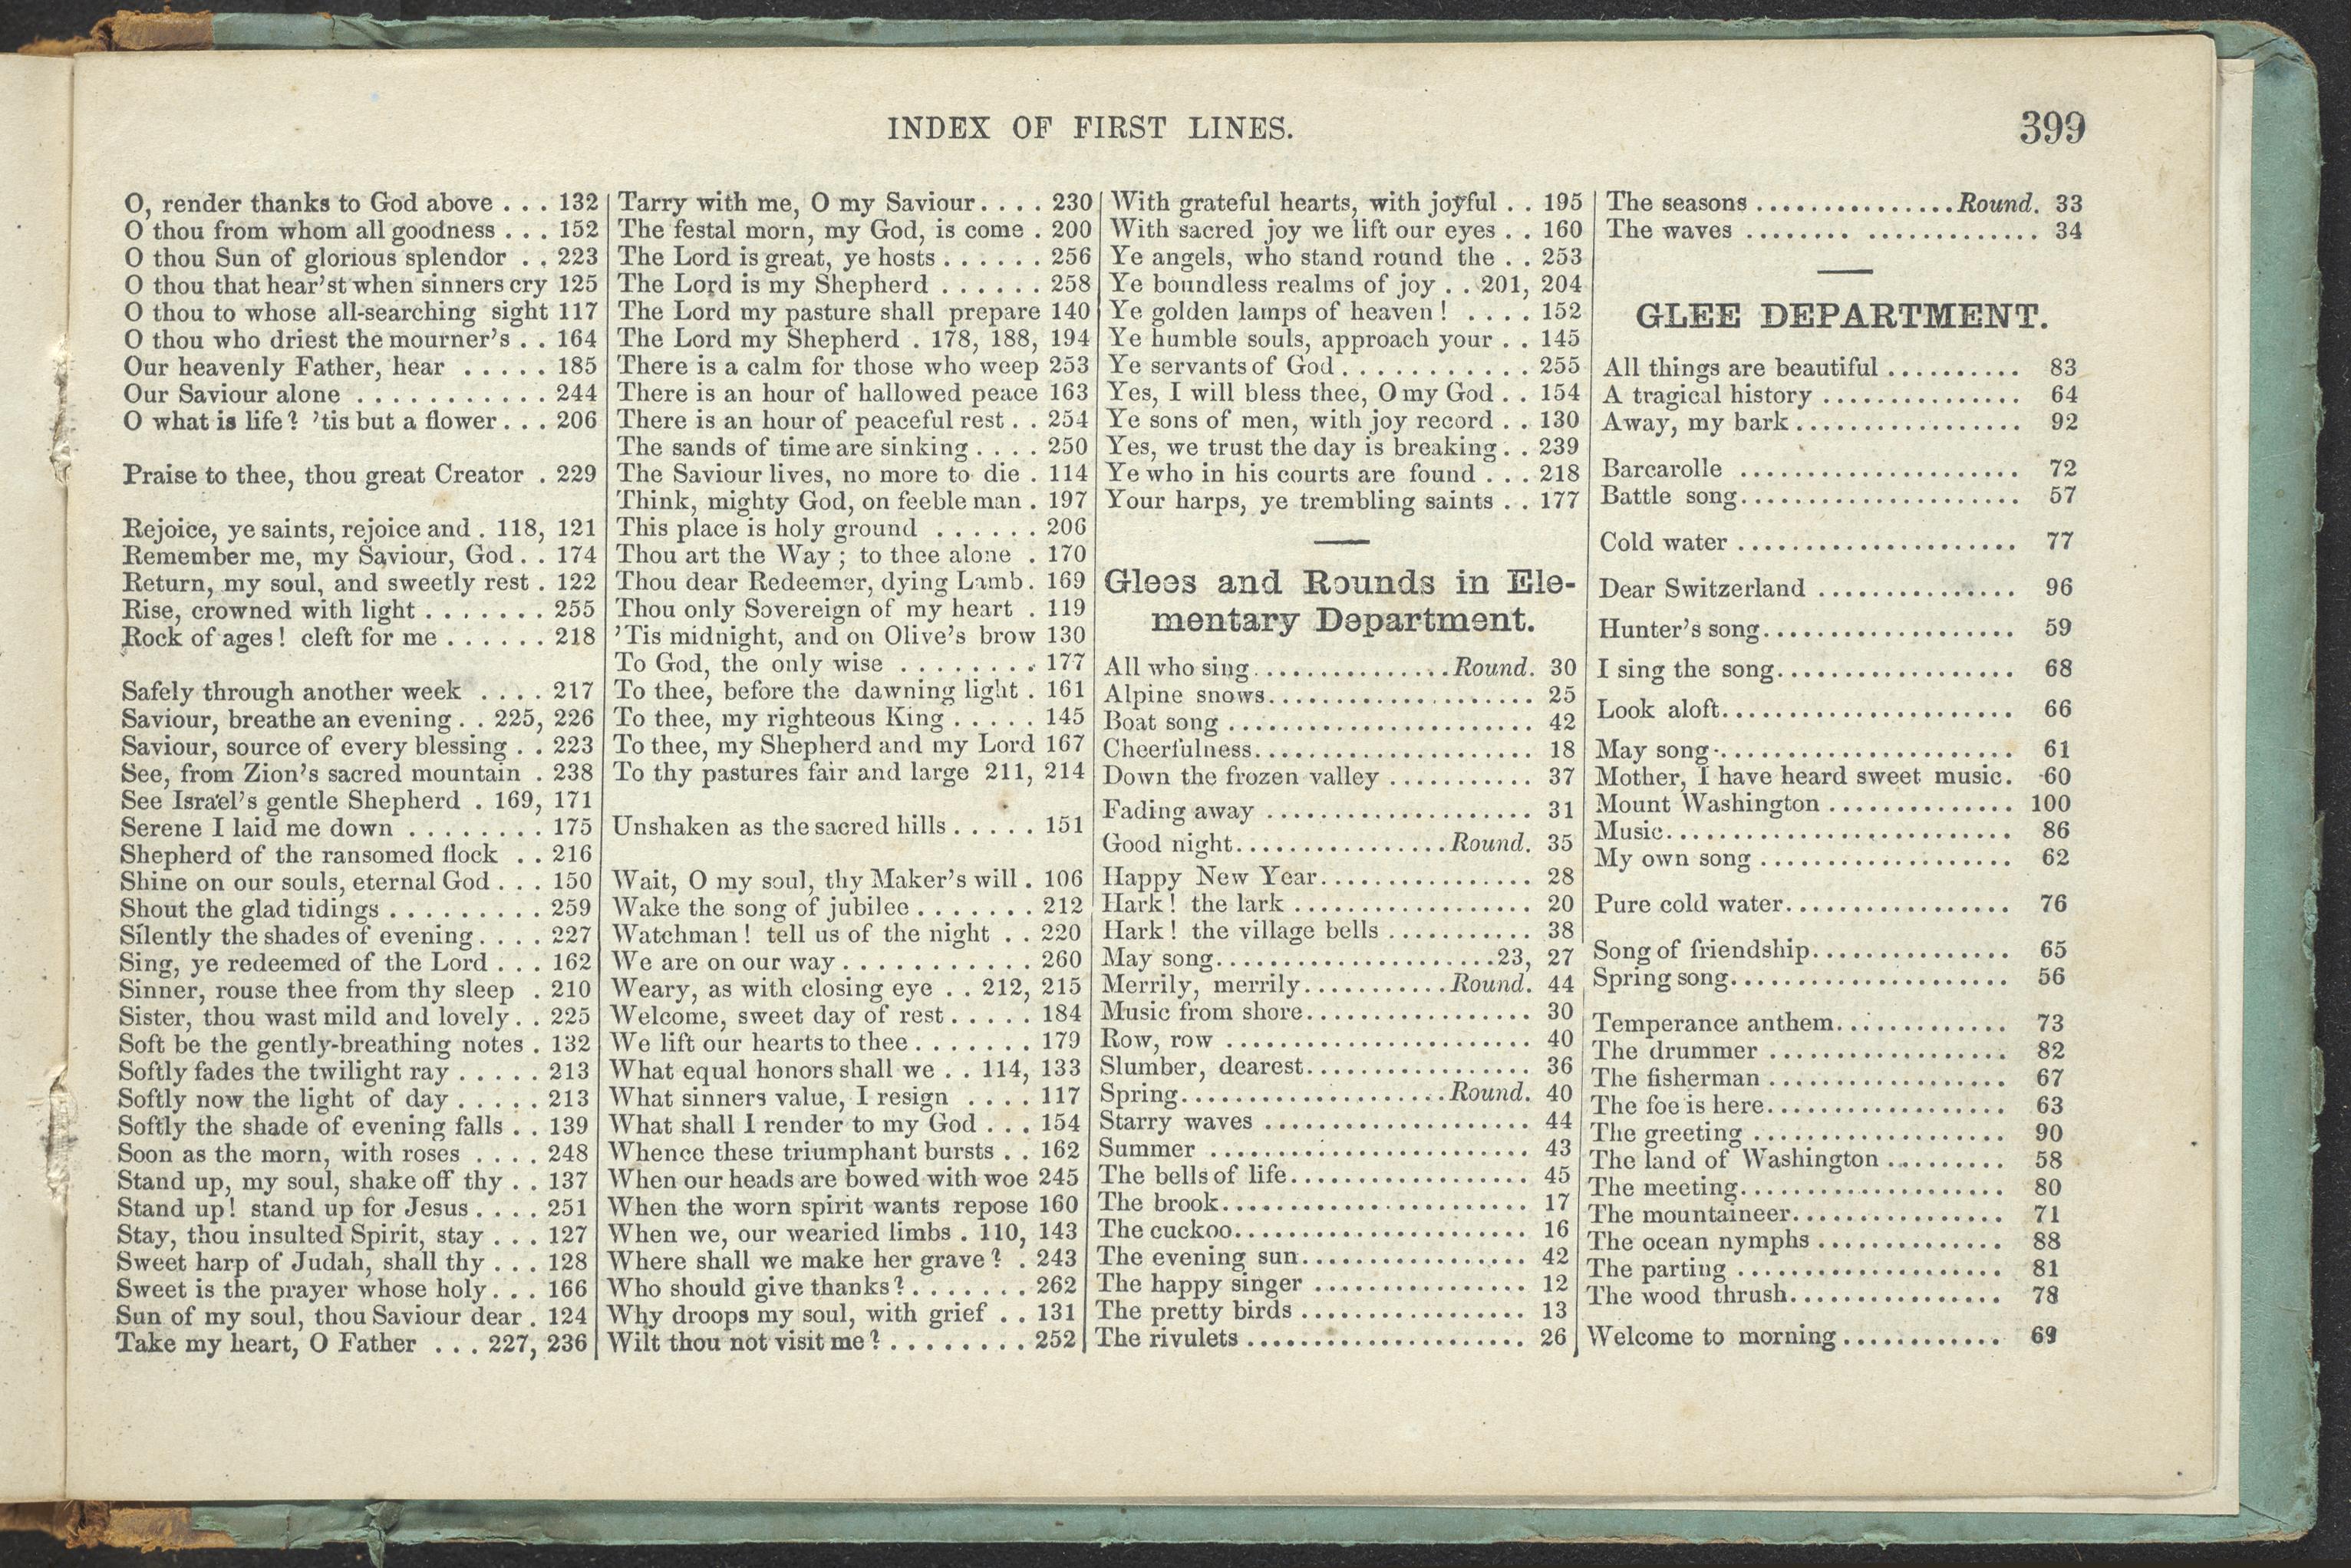 INDEX OF FIRST LINES.
399
O, render thanks to God above . . . 132
O thou from whom all goodness . . . 152
O thou Sun of glorious splendor . . 223
O thou that hear'st when sinners cry 125
O thou to whose all-searching sight 117
O thou who driest the mourner's . . 164
Our heavenly Father, hear . . . . . 185
Our Saviour alone . . . . . . . . . . . 244
O what is life? 'tis but a flower. . . 206
Praise to thee, thou great Creator . 229
Rejoice, ye saints, rejoice and . 118, 121
Remember me, my Saviour, God. . 174
Return, my soul, and sweetly rest . 122
Rise, crowned with light . . . . . . . 255
Rock of ages! cleft for me . . . . . . 218
Safely through another week . . . . 217
Saviour, breathe an evening . . 225, 226
Saviour, source of every blessing . . 223
See, from Zion's sacred mountain . 238
See Israel's gentle Shepherd . 169, 171
Serene I laid me down . . . . . . . . 175
Shepherd of the ransomed flock . . 216
Shine on our souls, eternal God . . . 150
Shout the glad tidings . . . . . . . . . 259
Silently the shades of evening. . . . 227
Sing, ye redeemed of the Lord . . . 162
Sinner, rouse thee from thy sleep . 210
Sister, thou wast mild and lovely. . 225
Soft be the gently-breathing notes . 132
Softly fades the twilight ray . . . . . 213
Softly now the light of day . . . . . 213
Softly the shade of evening falls . . 139
Soon as the morn, with roses . . . . 248
Stand up, my soul, shake off thy . . 137
Stand up! stand up for Jesus . . . . 251
Stay, thou insulted Spirit, stay . . . 127
Sweet harp of Judah, shall thy . . . 128
Sweet is the prayer whose holy. . . 166
Sun of my soul, thou Saviour dear . 124
Take my heart, O Father . . . 227, 236
Tarry with me, O my Saviour. . . . 230
The festal morn, my God, is come . 200
The Lord is great, ye hosts . . . . . . 256
The Lord is my Shepherd . . . . . . 258
The Lord my pasture shall prepare 140
The Lord my Shepherd . 178, 188, 194
There is a calm for those who weep 253
There is an hour of hallowed peace 163
There is an hour of peaceful rest . . 254
The sands of time are sinking . . . . 250
The Saviour lives, no more to die . 114
Think, mighty God, on feeble man . 197
This place is holy ground . . . . . . 206
Thou art the Way; to thee alone . 170
Thou dear Redeemer, dying Lamb. 169
Thou only Sovereign of my heart . 119
'Tis midnight, and on Olive's brow 130
To God, the only wise . . . . . . . . 177
To thee, before the dawning light . 161
To thee, my righteous King . . . . . 145
To thee, my Shepherd and my Lord 167
To thy pastures fair and large 211, 214
Unshaken as the sacred hills . . . . . 151
Wait, O my soul, thy Maker's will . 106
Wake the song of jubilee . . . . . . . 212
Watchman! tell us of the night . . 220
We are on our way . . . . . . . . . . . 260
Weary, as with closing eye . . 212, 215
Welcome, sweet day of rest . . . . . 184
We lift our hearts to thee . . . . . . . 179
What equal honors shall we . . 114, 133
What sinners value, I resign . . . . 117
What shall I render to my God . . . 154
Whence these triumphant bursts . . 162
When our heads are bowed with woe 245
When the worn spirit wants repose 160
When we, our wearied limbs . 110, 143
Where shall we make her grave? . 243
Who should give thanks? . . . . . . . 262
Why droops my soul, with grief . . 131
Wilt thou not visit me? . . . . . . . . 252
With grateful hearts, with joyful . . 195
With sacred joy we lift our eyes . . 160
Ye angels, who stand round the . . 253
Ye boundless realms of joy . . 201, 204
Ye golden lamps of heaven! . . . . 152
Ye humble souls, approach your . . 145
Ye servants of God . . . . . . . . . . . 255
Yes, I will bless thee, O my God . . 154
Ye sons of men, with joy record . . 130
Yes, we trust the day is breaking. . 239
Ye who in his courts are found . . . 218
Your harps, ye trembling saints . . 177
Glees and Rounds in Ele-
mentary Department.
All who sing . . . . . . . . . . Round. 30
Alpine snows . . . . . . . . . . 25
Boat song . . . . . . . . . . 42
Cheerfulness . . . . . . . . . . 18
Down the frozen valley . . . . . . . . . . 37
Fading away . . . . . . . . . . 31
Good night . . . . . . . . . . Round. 35
Happy New Year . . . . . . . . . . 28
Hark! the lark . . . . . . . . . . 20
Hark! the village bells . . . . . . . . . . 38
May song . . . . . . . . . . 23, 27
Merrily, merrily . . . . . . . . . . Round. 44
Music from shore . . . . . . . . . . 30
Row, row . . . . . . . . . . 40
Slumber, dearest . . . . . . . . . . 36
Spring . . . . . . . . . . Round. 40
Starry waves . . . . . . . . . . 44
Summer . . . . . . . . . . 43
The bells of life . . . . . . . . . . 45
The brook . . . . . . . . . . 17
The cuckoo . . . . . . . . . . 16
The evening sun . . . . . . . . . . 42
The happy singer . . . . . . . . . . 12
The pretty birds . . . . . . . . . . 13
The rivulets . . . . . . . . . . 26
The seasons . . . . . . . . . . Round. 33
The waves . . . . . . . . . . 34
GLEE DEPARTMENT.
All things are beautiful . . . . . . . . . . 83
A tragical history . . . . . . . . . . 64
Away, my bark . . . . . . . . . . 92
Barcarolle . . . . . . . . . . 72
Battle song . . . . . . . . . . 57
Cold water . . . . . . . . . . 77
Dear Switzerland . . . . . . . . . . 96
Hunter's song . . . . . . . . . . 59
I sing the song . . . . . . . . . . 68
Look aloft . . . . . . . . . . 66
May song . . . . . . . . . . 61
Mother, I have heard sweet music. 60
Mount Washington . . . . . . . . . . 100
Music . . . . . . . . . . 86
My own song . . . . . . . . . . 62
Pure cold water . . . . . . . . . . 76
Song of friendship . . . . . . . . . . 65
Spring song . . . . . . . . . . 56
Temperance anthem . . . . . . . . . . 73
The drummer . . . . . . . . . . 82
The fisherman . . . . . . . . . . 67
The foe is here . . . . . . . . . . 63
The greeting . . . . . . . . . . 90
The land of Washington . . . . . . . . . . 58
The meeting . . . . . . . . . . 80
The mountaineer . . . . . . . . . . 71
The ocean nymphs . . . . . . . . . . 88
The parting . . . . . . . . . . 81
The wood thrush . . . . . . . . . . 78
Welcome to morning . . . . . . . . . . 69